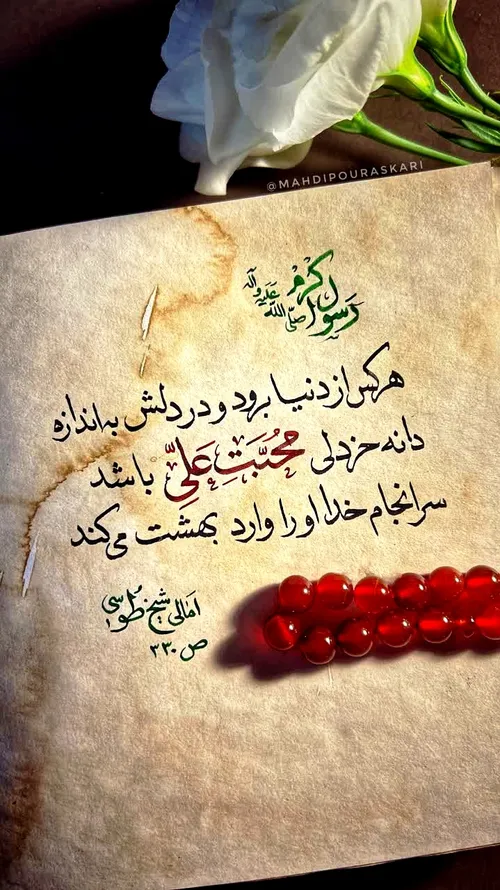 @MAHDIPOURASKARI
رسول اکرم
صلی الله علیه و آله
هرکس از دنیا برود و در دلش به اندازه
دانه خردلی مُحبَّتِ عَلِیّ باشد
سرانجام خدا او را وارد بهشت می‌کند
امالی شیخ طوسی
ص ۳۳۰